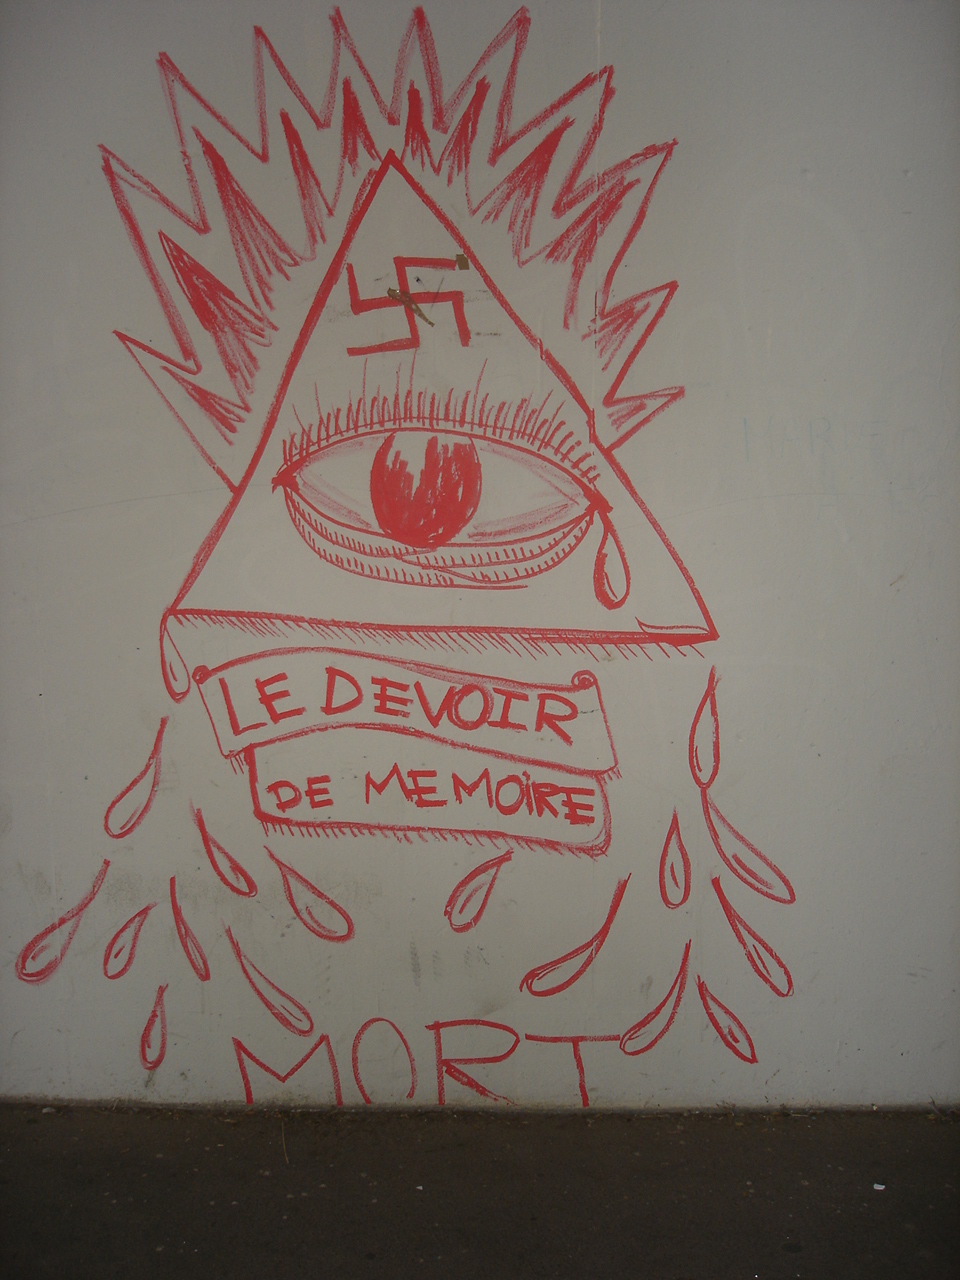 LE DEVOIR
DE MEMOIRE
MORT